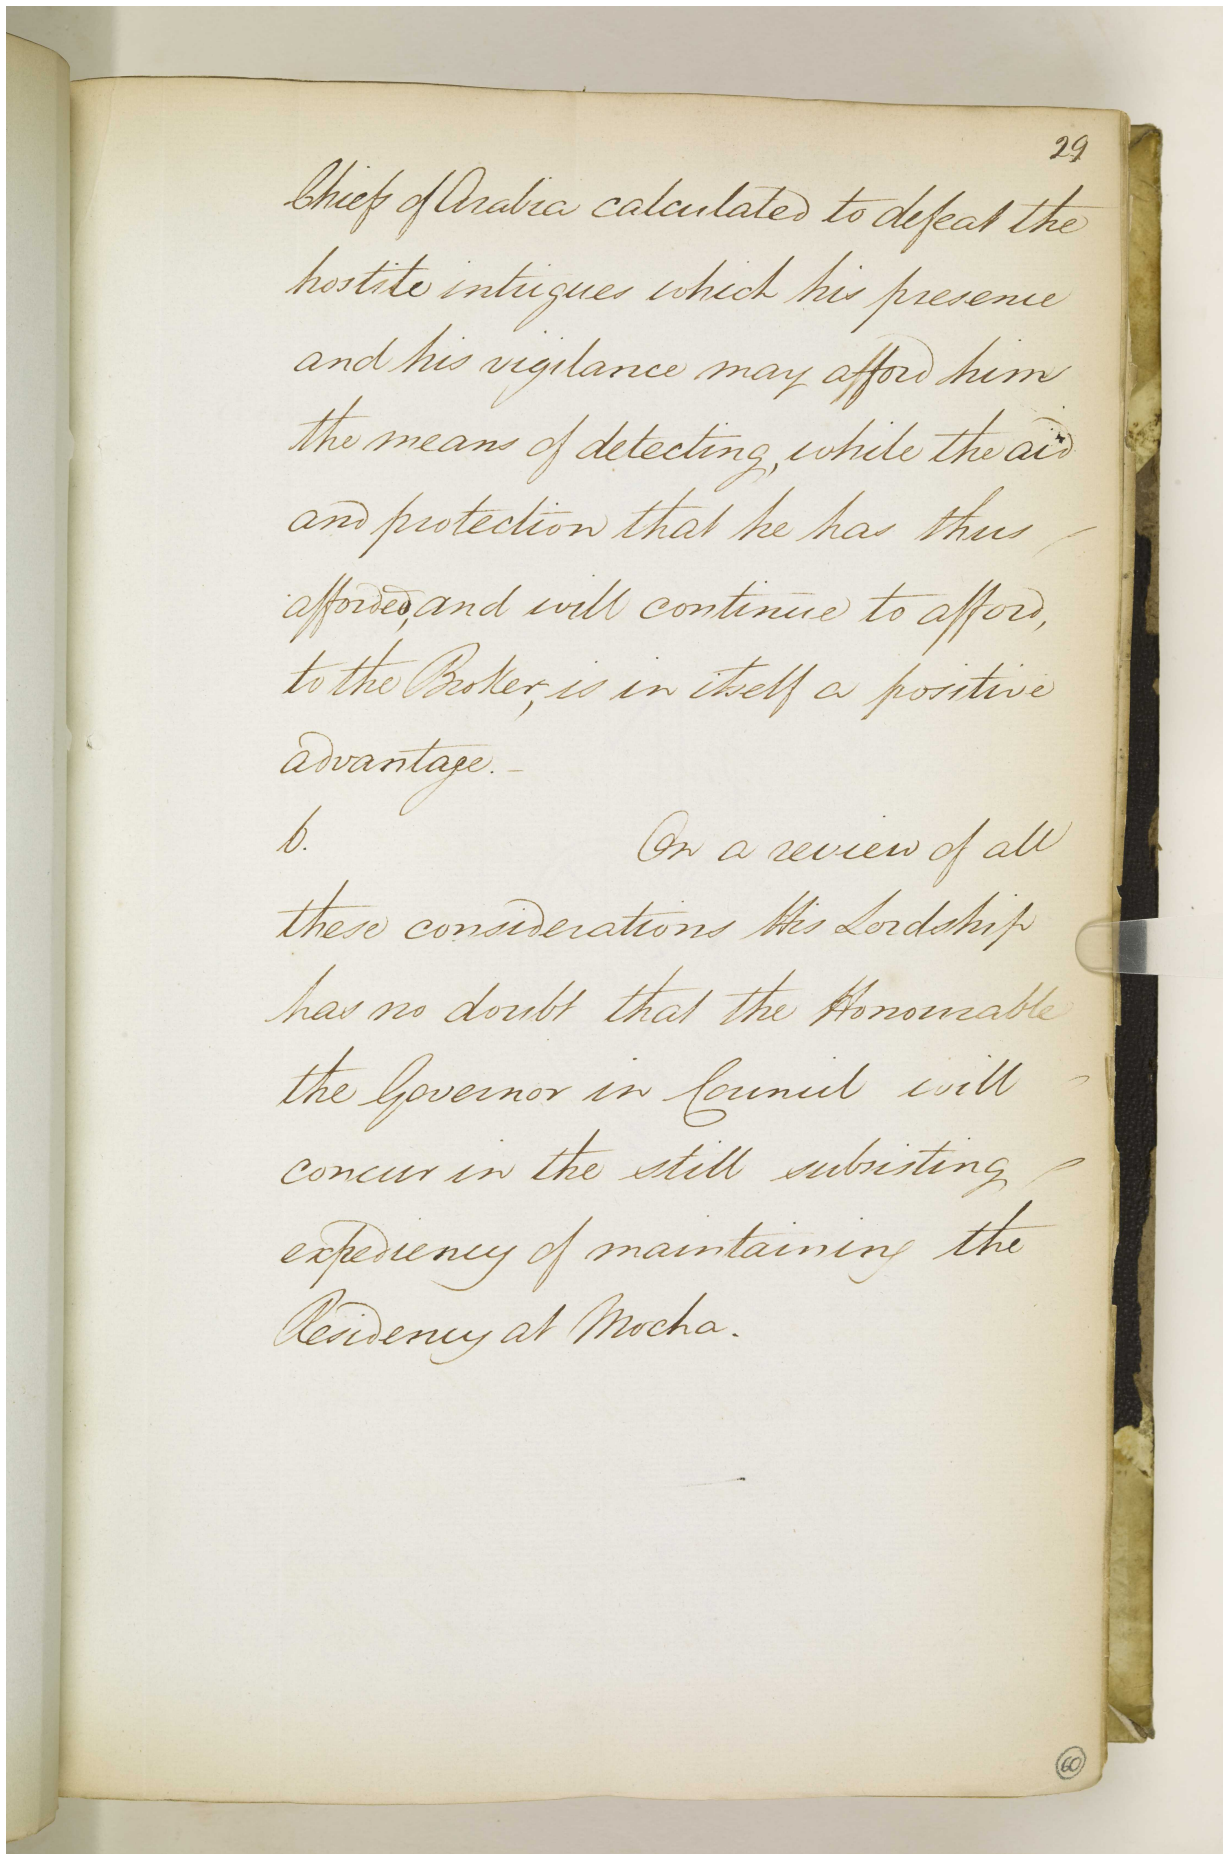 29
Chiefs of Arabia calculated to defeat the
hostile intrigues which his presence
and his vigilance may afford him
the means of detecting, while the aid
and protection that he has thus
afforded, and will continue to afford,
to the Broker, is in itself a positive
advantage. _
6. On a review of all
these considerations His Lordship
has no doubt that the Honourable
the Governor in Council will
concur in the still subsisting
expediency of maintaining the
Residency at Mocha.
60